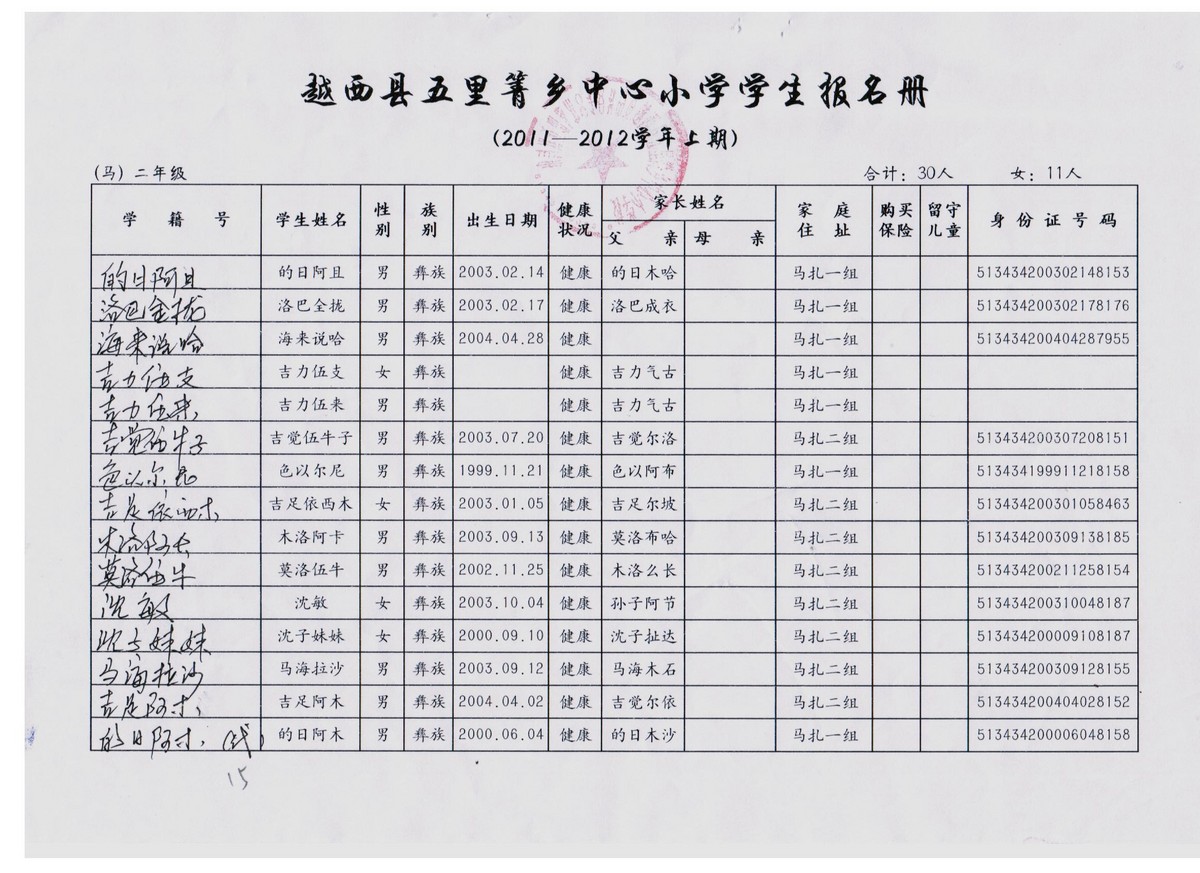 越西县五里箐乡中心小学学生报名册
(2011—2012学年上期)
(马) 二年级 合计: 30人 女: 11人
学籍号 学生姓名 性别 族别 出生日期 健康状况 家长姓名 父亲 母亲 家庭住址 购买保险 留守儿童 身份证号码
的日阿且 的日阿且 男 彝族 2003.02.14 健康 的日木哈 马扎一组 513434200302148153
洛巴全拢 洛巴全拢 男 彝族 2003.02.17 健康 洛巴成衣 马扎一组 513434200302178176
海来说哈 海来说哈 男 彝族 2004.04.28 健康 马扎一组 513434200404287955
吉力伍支 吉力伍支 女 彝族 健康 吉力气古 马扎一组
吉力伍来 吉力伍来 男 彝族 健康 吉力气古 马扎一组
吉觉伍牛子 吉觉伍牛子 男 彝族 2003.07.20 健康 吉觉尔洛 马扎二组 513434200307208151
色以尔尼 色以尔尼 男 彝族 1999.11.21 健康 色以阿布 马扎一组 513434199911218158
吉足依西木 吉足依西木 女 彝族 2003.01.05 健康 吉足尔坡 马扎二组 513434200301058463
木洛阿卡 男 彝族 2003.09.13 健康 莫洛布哈 马扎二组 513434200309138185
莫洛伍牛 莫洛伍牛 男 彝族 2002.11.25 健康 木洛么长 马扎二组 513434200211258154
沈敏 沈敏 女 彝族 2003.10.04 健康 孙子阿节 马扎二组 513434200310048187
沈子妹妹 沈子妹妹 女 彝族 2000.09.10 健康 沈子扯达 马扎二组 513434200009108187
马海拉沙 马海拉沙 男 彝族 2003.09.12 健康 马海木石 马扎二组 513434200309128155
吉足阿木 吉足阿木 男 彝族 2004.04.02 健康 吉觉尔依 马扎二组 513434200404028152
的日阿木 (代) 的日阿木 男 彝族 2000.06.04 健康 的日木沙 马扎一组 513434200006048158
15